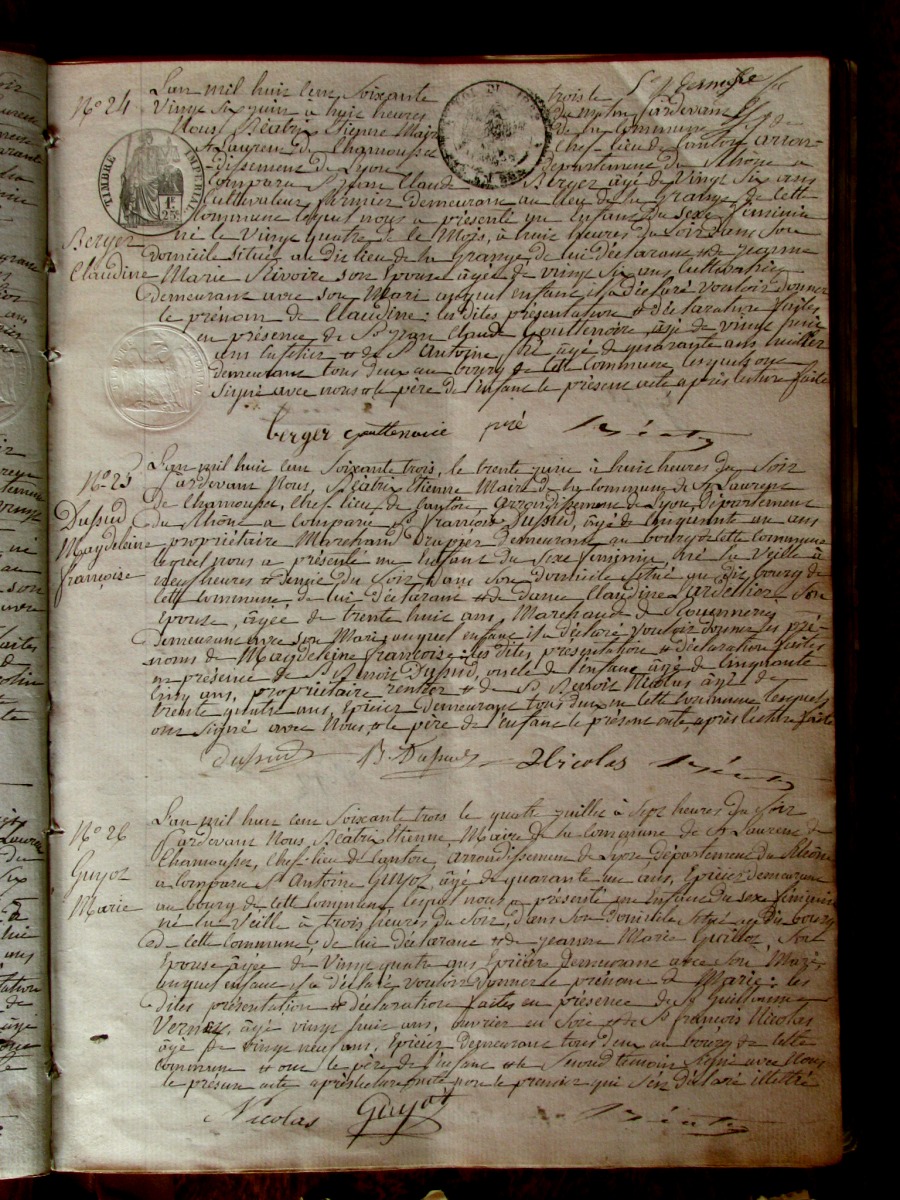 N° 24
L'an mil huit cent Soixante trois le
Vingt Six juin à huit heures du matin Pardevant
Nous Béatrix Etienne Maire de la Commune de
St Laurent de Chamousset Chef-lieu de Canton, arron-
dissement de Lyon Département du Rhône a
Comparu Sr Jean Claude Berger âgé de Vingt Six ans
Cultivateur, fermier demeurant au lieu de la Grange de cette
Commune lequel nous a présenté un Enfant du sexe féminin
né le Vingt quatre de ce Mois, à huit heures du Soir dans Son
domicile situé au dit lieu de la Grange, de lui déclarant & de Jeanne
Marie Rivoire son Epouse âgée de vingt Six ans, cultivatrice
demeurant avec son Mari auquel enfant il a déclaré vouloir donner
le prénom de Claudine : les dites présentation & déclaration faites
en présence de Sr Jean Claude Gouttenoire, âgé de vingt huit
ans & de Sr Antoine Pré âgé de quarante ans
demeurant tous deux au bourg de cette Commune, lesquels ont
Signé avec nous & le père de l'Enfant le présent acte après lecture faite
Berger
Claudine
TIMBRE IMPERIAL
berger gouttenoire pré
N° 25
L'an mil huit cent Soixante trois, le trente juin à huit heures du Soir
Pardevant Nous, Béatrix Etienne Maire de la Commune de St Laurent
de Chamousset, Chef-lieu de Canton, arrondissement de Lyon, Département
du Rhône a Comparu Sr françois Dussud, âgé de Cinquante un ans
propriétaire Marchand Drapier demeurant au bourg de cette Commune
lequel nous a présenté un Enfant du Sexe féminin, né la Veille à
neuf heures & demie du Soir dans Son Domicile Situé au dit bourg de
cette Commune de lui déclarant & de dame Claudine Son
Epouse, âgée de trente huit ans, Marchande
demeurant avec son Mari, auquel enfant il a déclaré Vouloir donner les pré-
noms de Magdeleine françoise : les dites présentation & déclaration faites
en présence de Sr Benoit Dussud, oncle de l'enfant âgé de Cinquante
Cinq ans, propriétaire rentier & de Sr Benoit Nicolas âgé de
trente quatre ans, Epicier demeurant tous deux en cette Commune lesquels
ont Signé avec Nous & le père de l'enfant le présent acte, après lecture faite
Dussud
Magdeleine
françoise
dussud B. Dussud Nicolas
N° 26
L'an mil huit cent Soixante trois le quatre juillet à Sept heures du Soir
Pardevant Nous Béatrix Etienne, Maire de la Commune de St Laurent de
Chamousset, Chef-lieu de Canton, arrondissement de Lyon Département du Rhône
a Comparu Sr Antoine Guyot, âgé de quarante un ans, Epicier demeurant
au bourg de cette Commune lequel nous a présenté un Enfant du sexe féminin
né la Veille à trois heures du Soir, dans Son Domicile Situé au dit bourg
de cette Commune, de lui déclarant & de Jeanne Marie Son
Epouse âgée de Vingt quatre ans Epicière demeurant avec Son Mari,
auquel enfant il a déclaré Vouloir donner le prénom de Marie : les
dites présentation & déclaration faites en présence de Sr Guillaume
âgé vingt huit ans, ouvrier en Soie & de Sr françois Nicolas
âgé de vingt neuf ans, Epicier demeurant tous deux au bourg de cette
Commune & ont le père de l'enfant & le Second témoin Signé avec Nous
le présent acte après lecture faite non le premier qui S'est déclaré illettré
Guyot
Marie
Nicolas Guyot